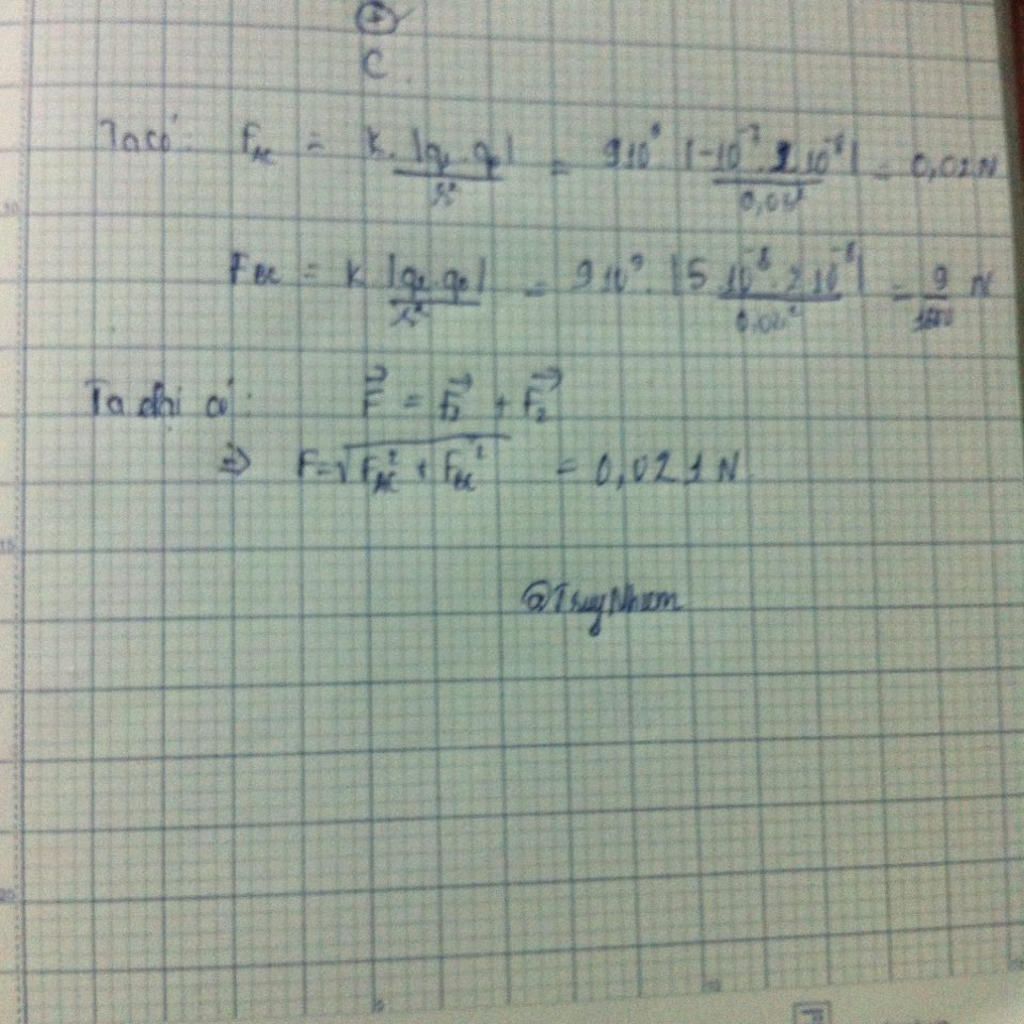 +
C
Ta có: F_AC = k. |q₁.q₀| / r² = 9.10⁹ |-10⁻⁷. 2.10⁻⁸| / 0,0 ² = 0,02 N
F_BC = k |q₂.q₀| / r² = 9.10⁹. |5.10⁻⁸. 2.10⁻⁸| / 0,0 ² = 9 / 1600 N
Ta có: F⃗ = F₁⃗ + F₂⃗
⇒ F = √(F_AC² + F_BC²) = 0,021 N
10
15
20
5
10